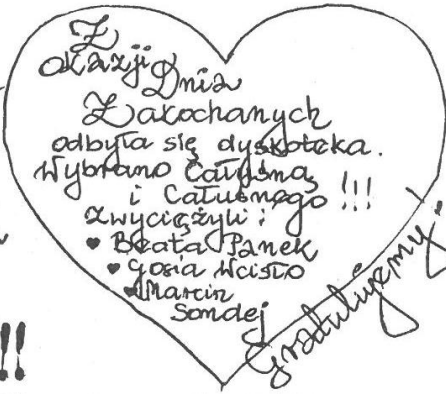 Z
okazji Dnia
Zakochanych
odbyła się dyskoteka.
Wybrano Całuśną
i Całuśnego !!!
Zwyciężyli :
♥ Beata Panek
♥ Gosia Wcisło
♥ Marcin
Sondej
Gratulujemy!
!!